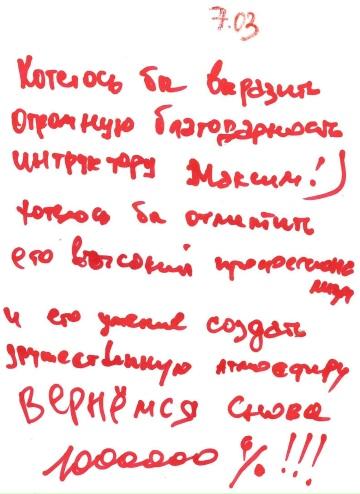 7.03
Хотелось бы выразить
огромную благодарность
интруктору Максим!)
хотелось бы отметить
его высокий професиона
лизм
и его умение создать
дружественную атмосферу
ВЕРНЁМСЯ снова
1000000 %!!!